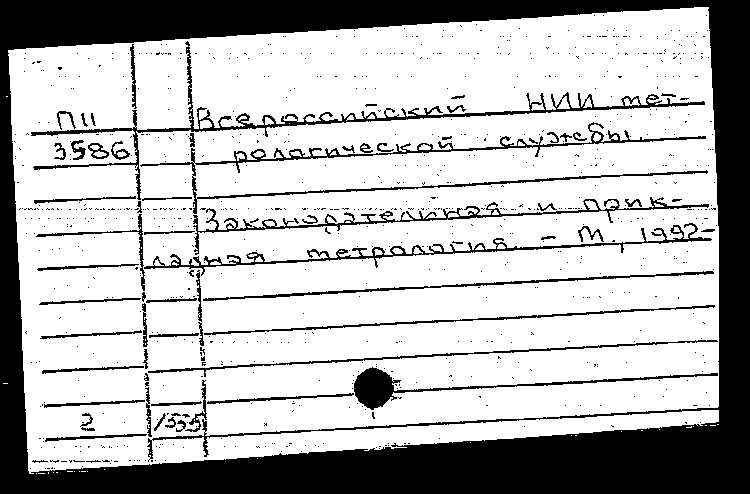 П11 Всероссийский НИИ мет-
3586 рологической службы.
Законодательная и прик-
ладная метрология. – М., 1992-
2 1555